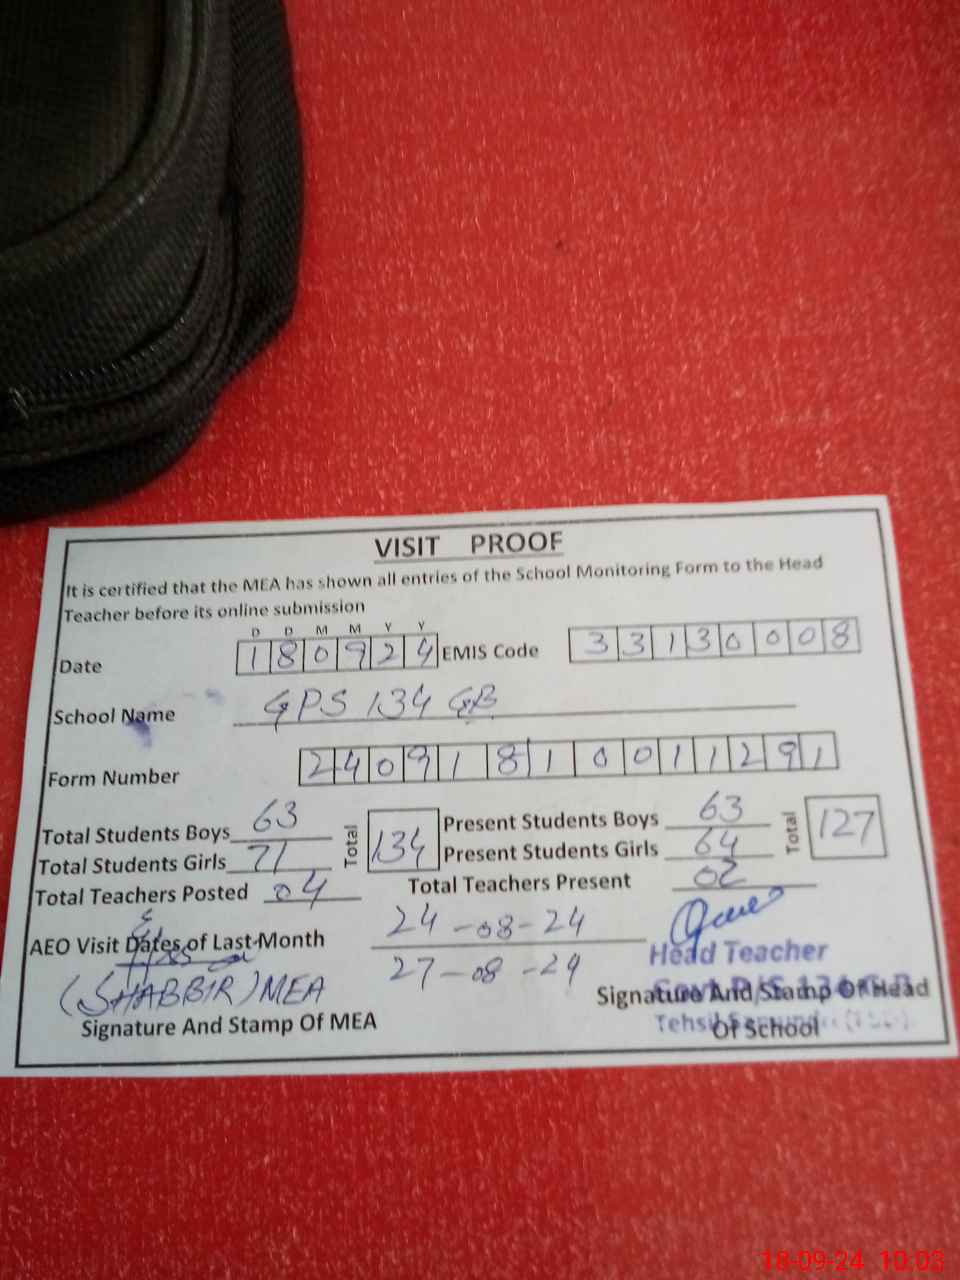 VISIT PROOF
It is certified that the MEA has shown all entries of the School Monitoring Form to the Head
Teacher before its online submission
D D M M Y Y
Date 180924 EMIS Code 33130008
School Name GPS 134 GB
Form Number 24091810011291
Total Students Boys 63 Total 134 Present Students Boys 63 Total 127
Total Students Girls 71 Present Students Girls 64
Total Teachers Posted 04 Total Teachers Present 02
AEO Visit Dates of Last Month 24-08-24
27-08-24
Head Teacher
(SHABBIR) MEA
Signature And Stamp Of MEA
Signature And Stamp Of Head
Of School
18-09-24 10:03